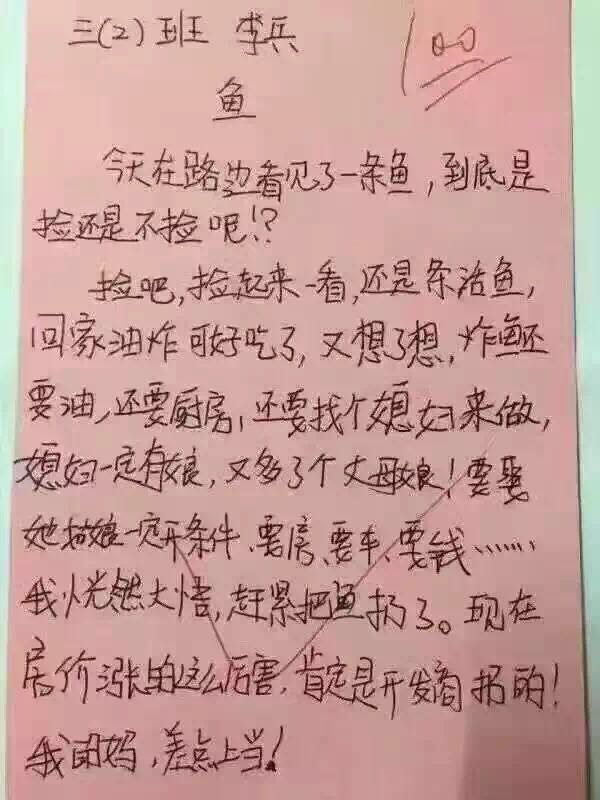 三(2)班 李兵
100
鱼
今天在路边看见了一条鱼,到底是
捡还是不捡呢!?
捡吧,捡起来一看,还是条活鱼,
回家油炸可好吃了,又想了想,炸鱼还
要油,还要厨房,还要找个媳妇来做,
媳妇一定有娘,又多了个丈母娘!要娶
她娘一定开条件、要房、要车、要钱……
我恍然大悟,赶紧把鱼扔了。现在
房价涨的这么厉害,肯定是开发商扔的!
我的妈,差点上当!